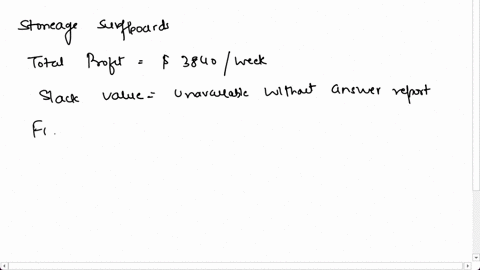 Stoneage Surfboards
Total Profit = $ 3840 / week
Slack value = unavailable without answer report
Fr